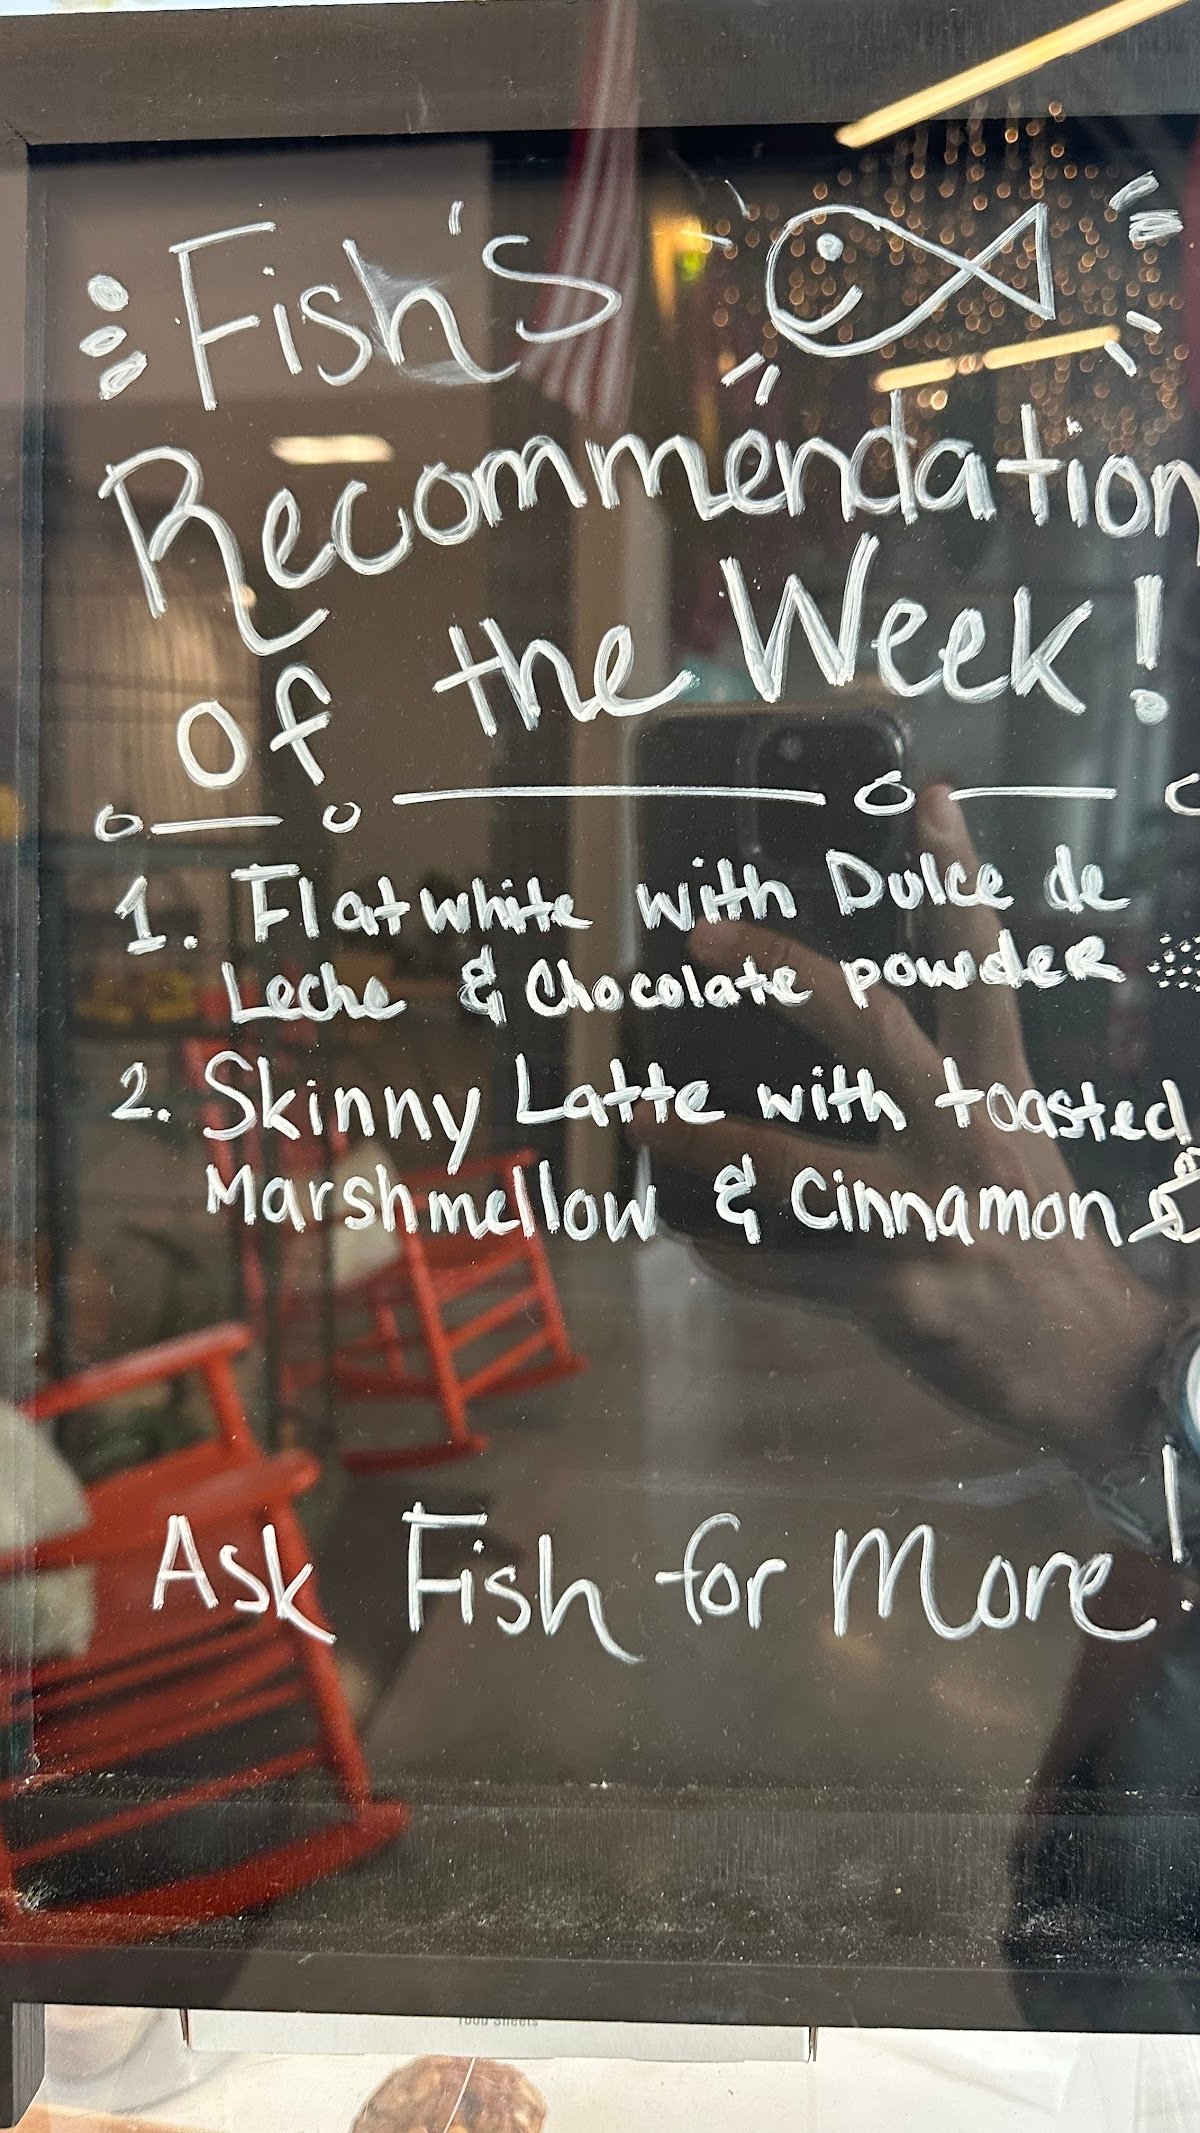 Fish's
Recommendation
of the Week!
1. Flatwhite with Dulce de
Leche & Chocolate powder
2. Skinny Latte with toasted
Marshmellow & Cinnamon
Ask Fish for More!
Food Sheets